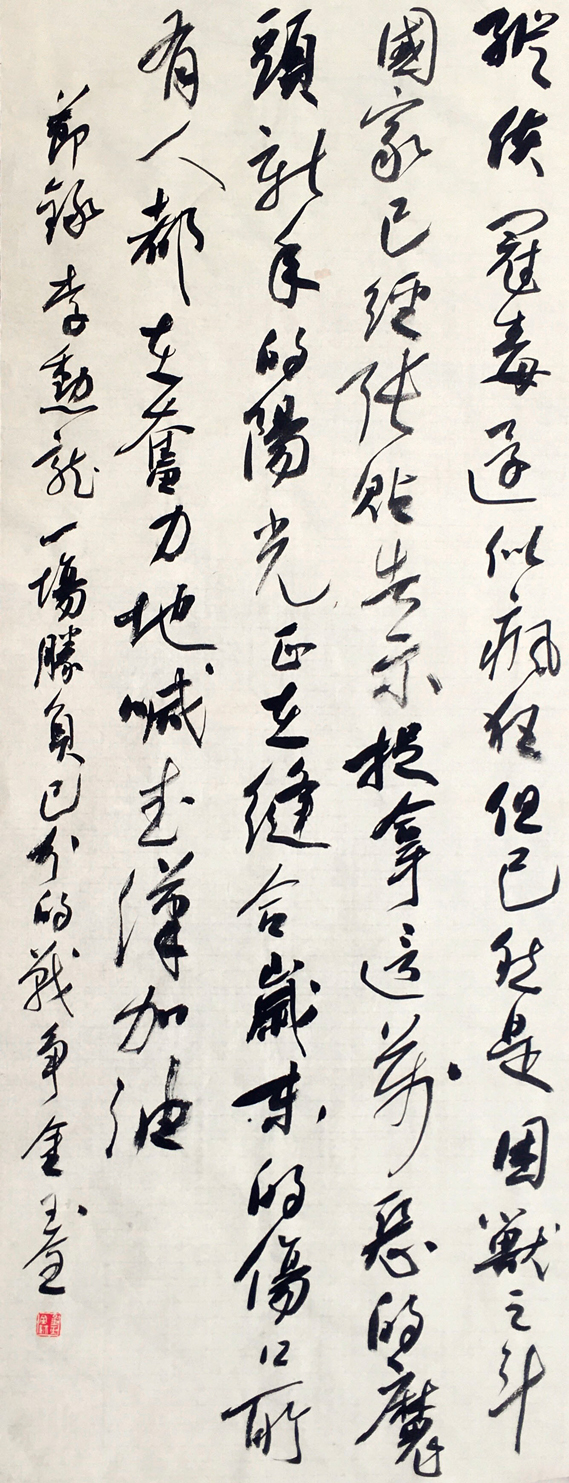 縱使冠毒還似瘋狂但已然是困獸之斗
國家已經张貼告示捉拿這萬惡的魔
頭新年的陽光正在縫合歲末的傷口所
有人都在奮力地喊武漢加油
節錄李勳龍一場勝負已分的戰争金玉